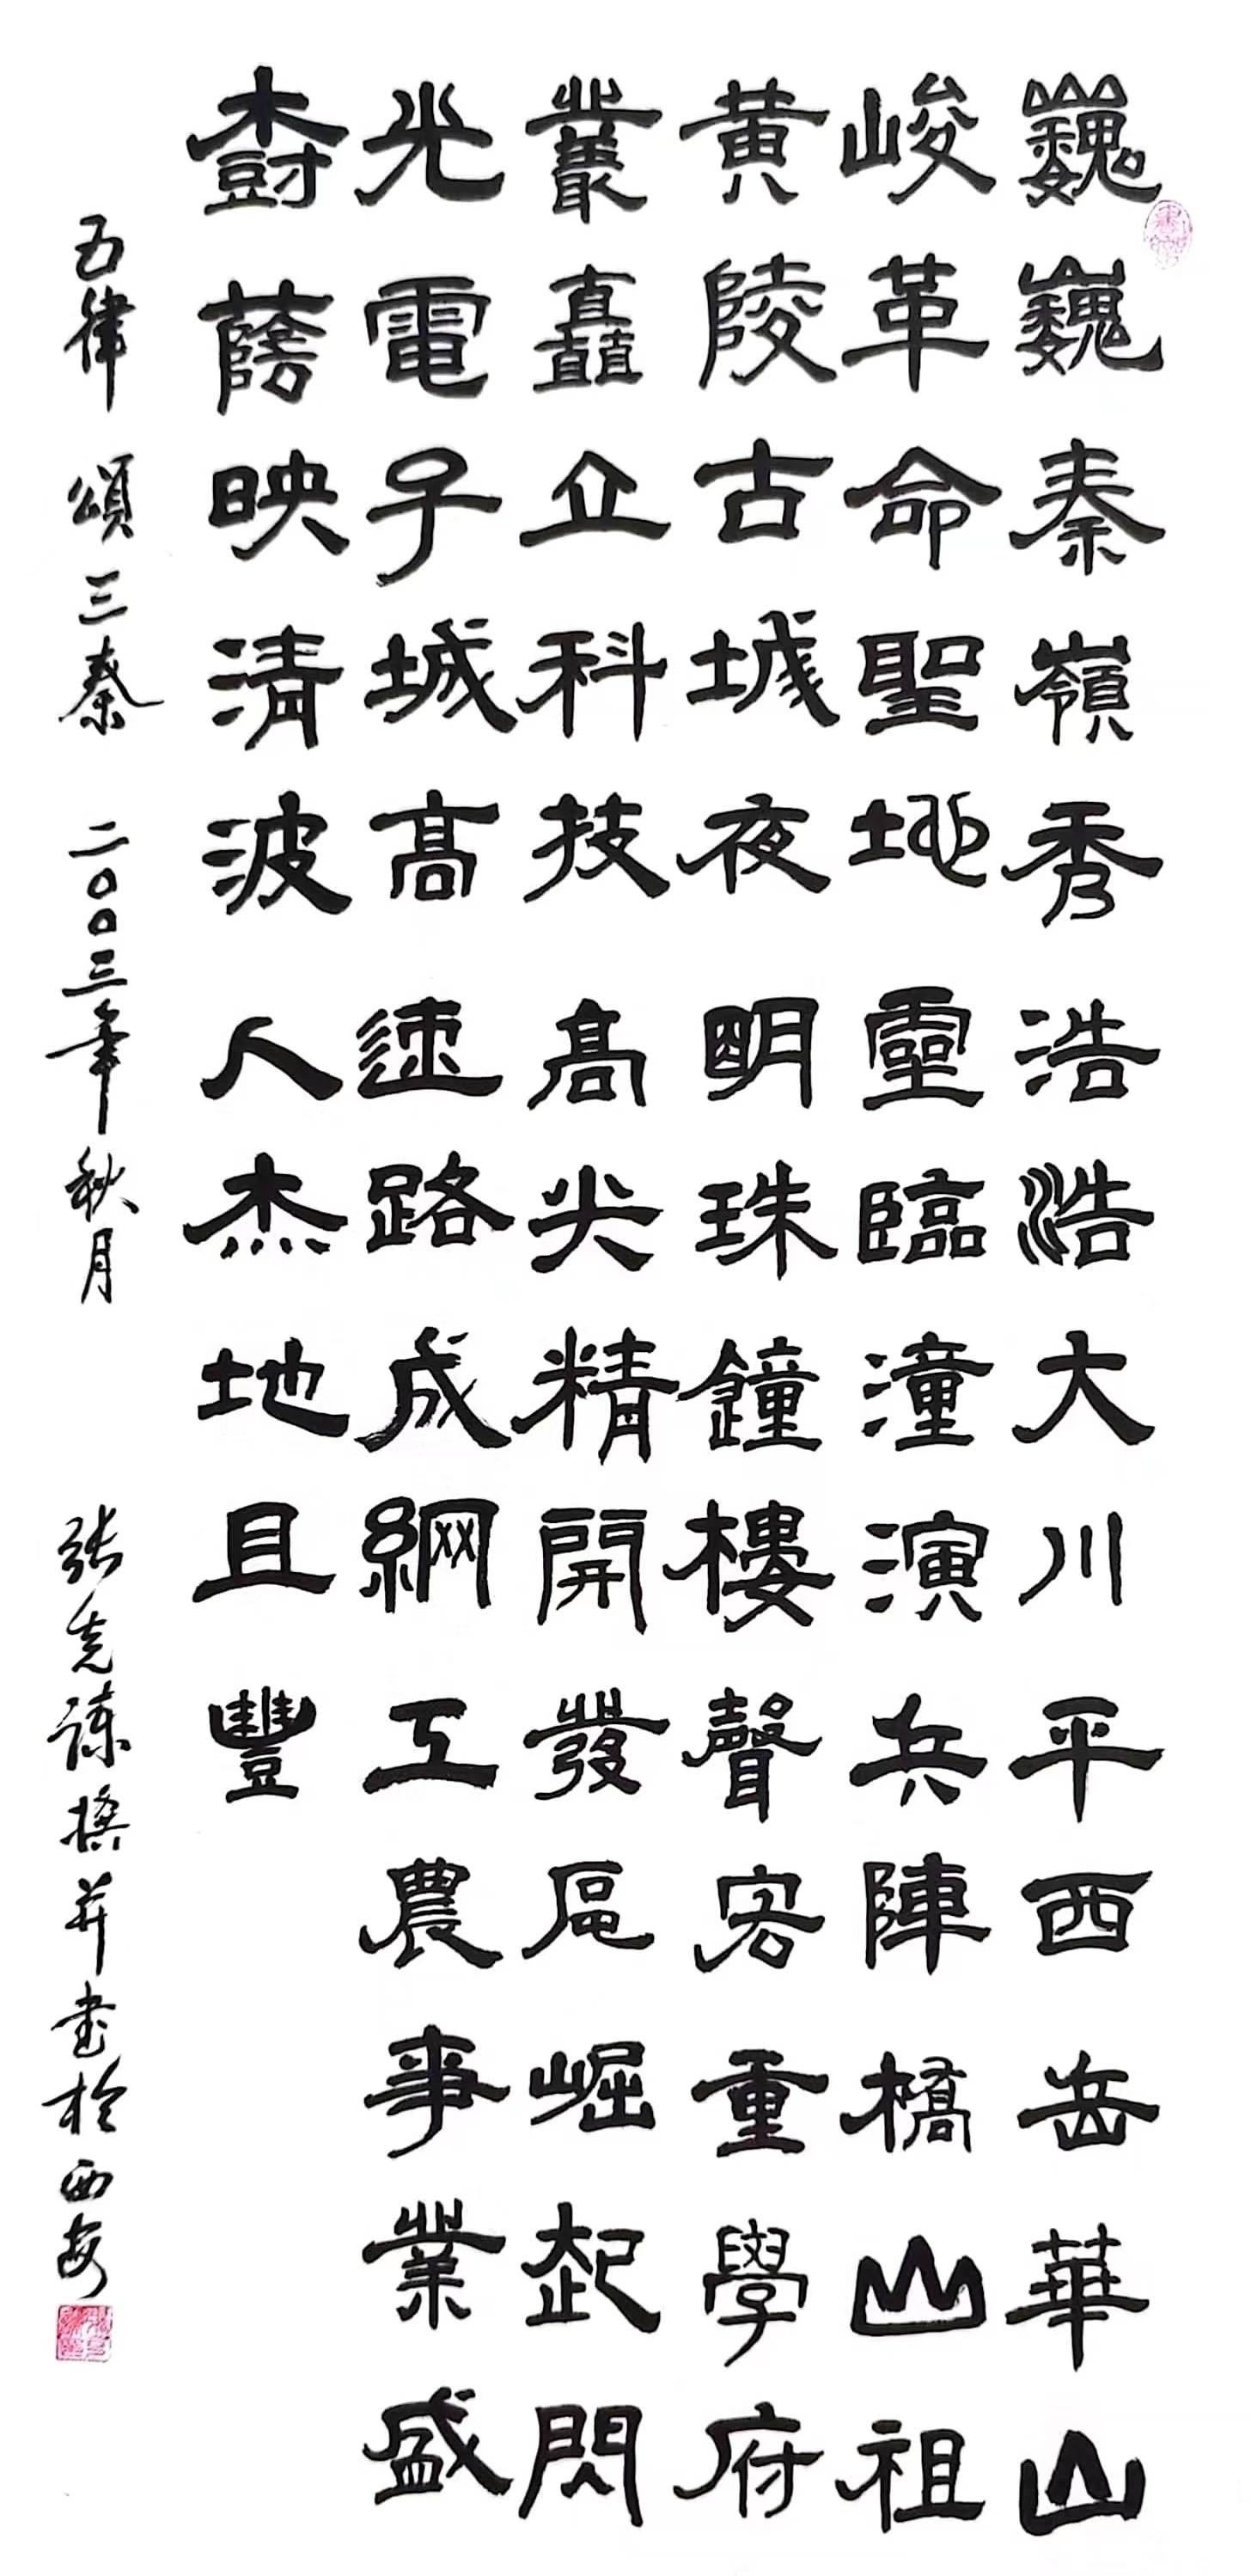 巍巍秦嶺秀浩浩大川平西岳華山
峻革命聖地靈臨潼演兵陣橋山祖
黄陵古城夜明珠鐘樓聲宏重學府
叢矗立科技高尖精開發區崛起閃
光電子城高速路成網工農事業盛
樹蔭映清波人杰地且豐
五律 頌三秦 二〇〇三年秋月 张克諫撰并書於西安